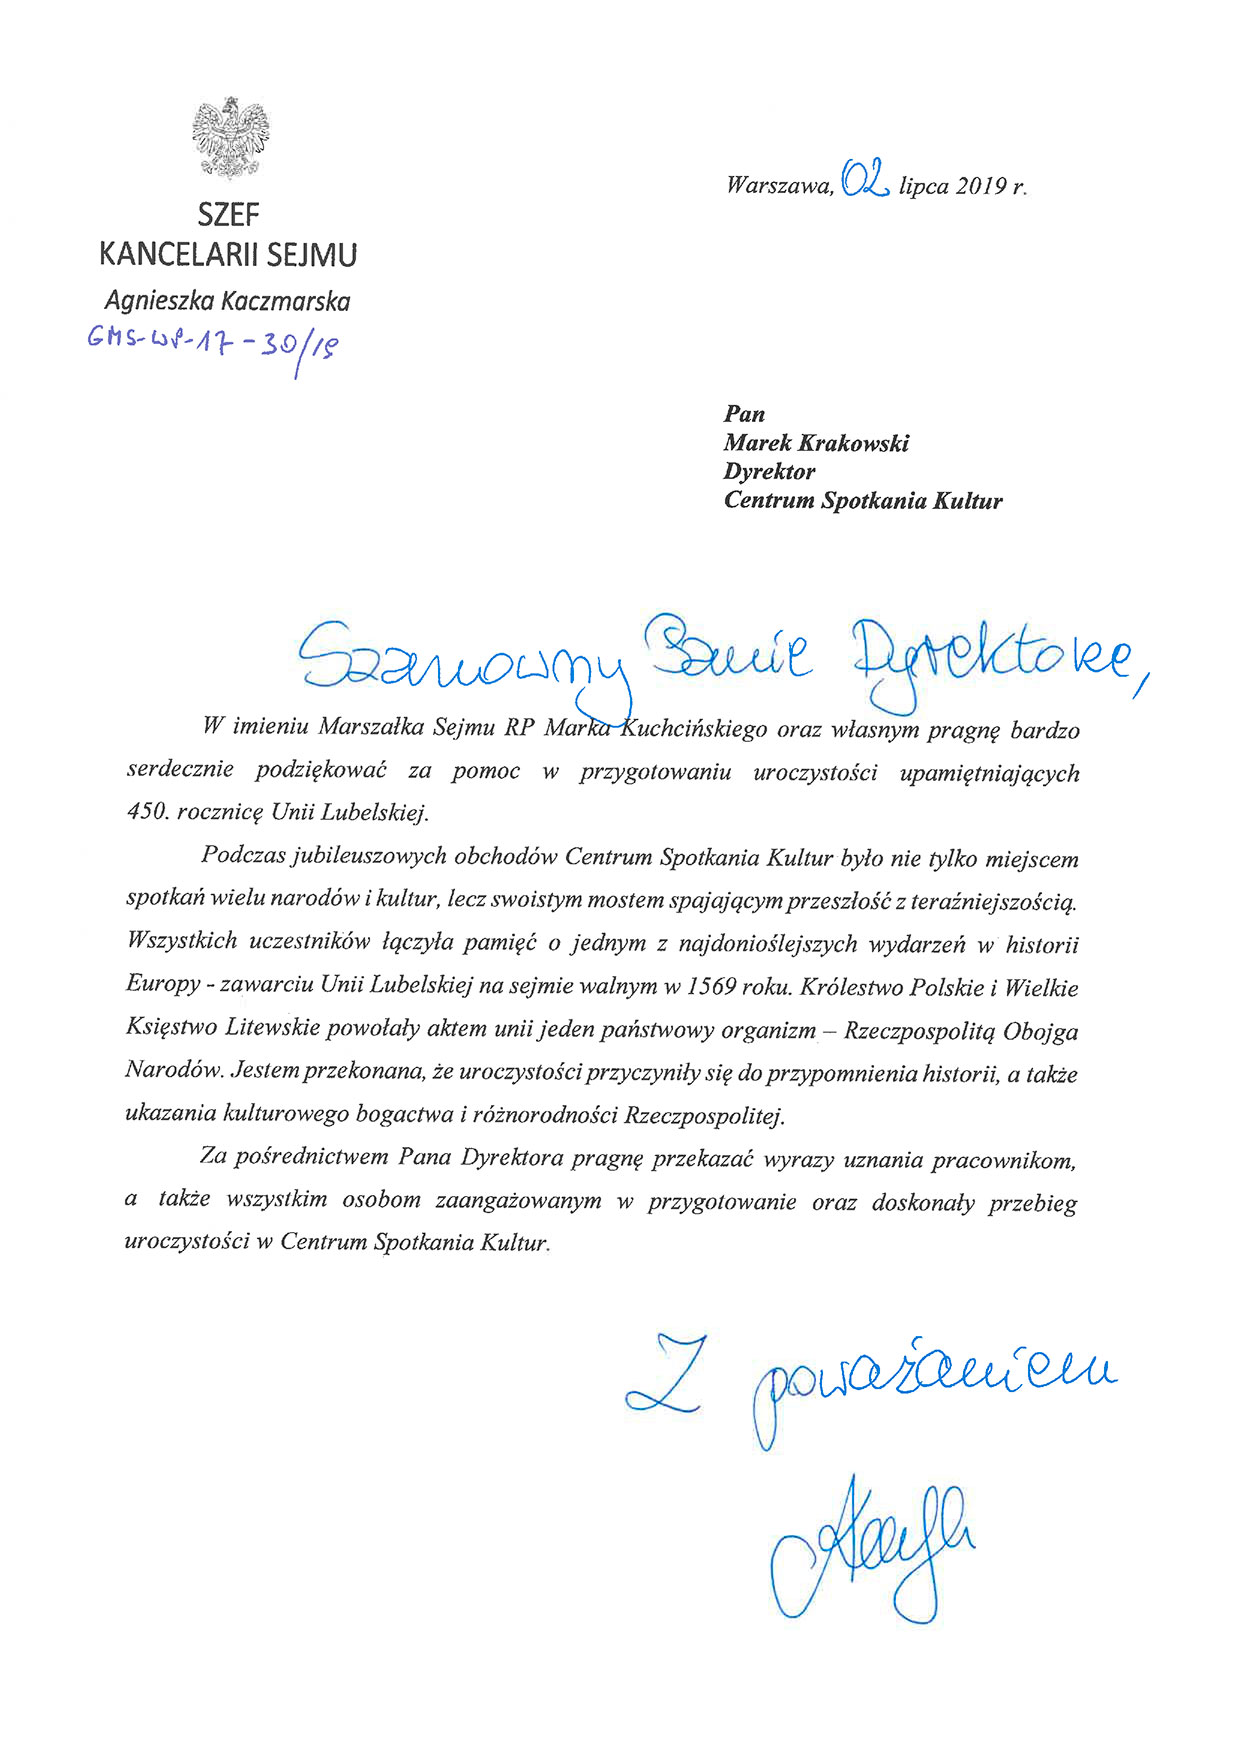 Warszawa, 02 lipca 2019 r.
SZEF
KANCELARII SEJMU
Agnieszka Kaczmarska
GMS-WP-17-30/19
Pan
Marek Krakowski
Dyrektor
Centrum Spotkania Kultur
Szanowny Panie Dyrektorze,
W imieniu Marszałka Sejmu RP Marka Kuchcińskiego oraz własnym pragnę bardzo
serdecznie podziękować za pomoc w przygotowaniu uroczystości upamiętniających
450. rocznicę Unii Lubelskiej.
Podczas jubileuszowych obchodów Centrum Spotkania Kultur było nie tylko miejscem
spotkań wielu narodów i kultur, lecz swoistym mostem spajającym przeszłość z teraźniejszością.
Wszystkich uczestników łączyła pamięć o jednym z najdonioślejszych wydarzeń w historii
Europy - zawarciu Unii Lubelskiej na sejmie walnym w 1569 roku. Królestwo Polskie i Wielkie
Księstwo Litewskie powołały aktem unii jeden państwowy organizm – Rzeczpospolitą Obojga
Narodów. Jestem przekonana, że uroczystości przyczyniły się do przypomnienia historii, a także
ukazania kulturowego bogactwa i różnorodności Rzeczpospolitej.
Za pośrednictwem Pana Dyrektora pragnę przekazać wyrazy uznania pracownikom,
a także wszystkim osobom zaangażowanym w przygotowanie oraz doskonały przebieg
uroczystości w Centrum Spotkania Kultur.
Z poważaniem